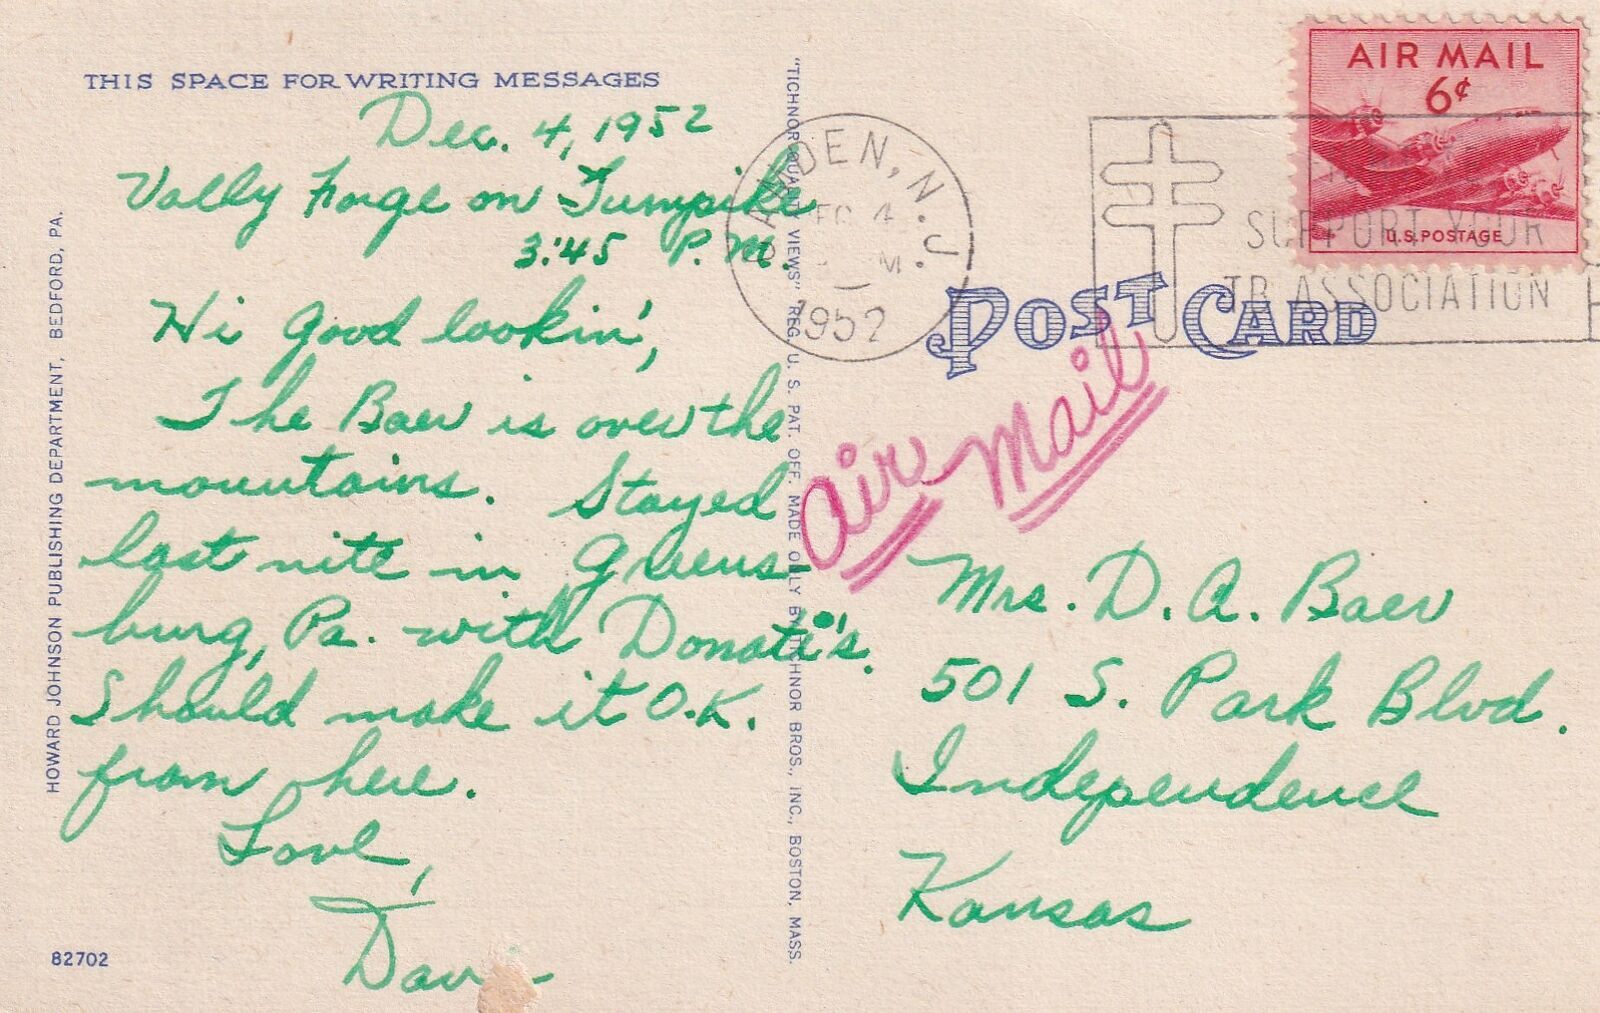 THIS SPACE FOR WRITING MESSAGES
Dec. 4, 1952
Vally Forge on Turnpike
3:45 P.M.
Hi Good lookin',
The Baer is over the
mountains. Stayed
last nite in Greens-
burg, Pa. with Donati's.
Should make it O.K.
from here.
Love,
Dave
82702
HOWARD JOHNSON PUBLISHING DEPARTMENT, BEDFORD, PA.
"TICHNOR QUALITY VIEWS" REG. U. S. PAT. OFF. MADE ONLY BY TICHNOR BROS., INC., BOSTON, MASS.
CAMDEN, N.J.
DEC 4
1952
SUPPORT YOUR
TB ASSOCIATION
AIR MAIL
6¢
U.S. POSTAGE
POST CARD
Air Mail
Mrs. D. A. Baer
501 S. Park Blvd.
Independence
Kansas